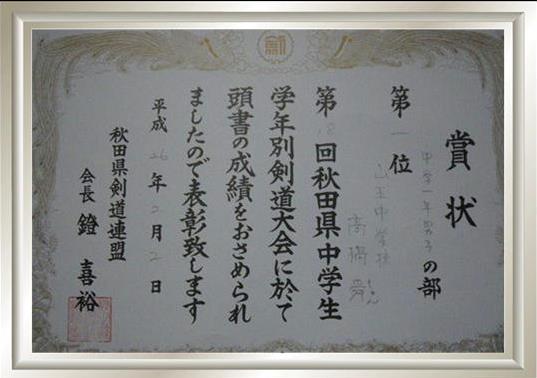 賞状
中学一年男子の部
第一位
山王中学校
第18回秋田県中学生
学年別剣道大会に於て
頭書の成績をおさめられ
ましたので表彰致します
平成26年2月2日
秋田県剣道連盟
会長 鐙 喜裕